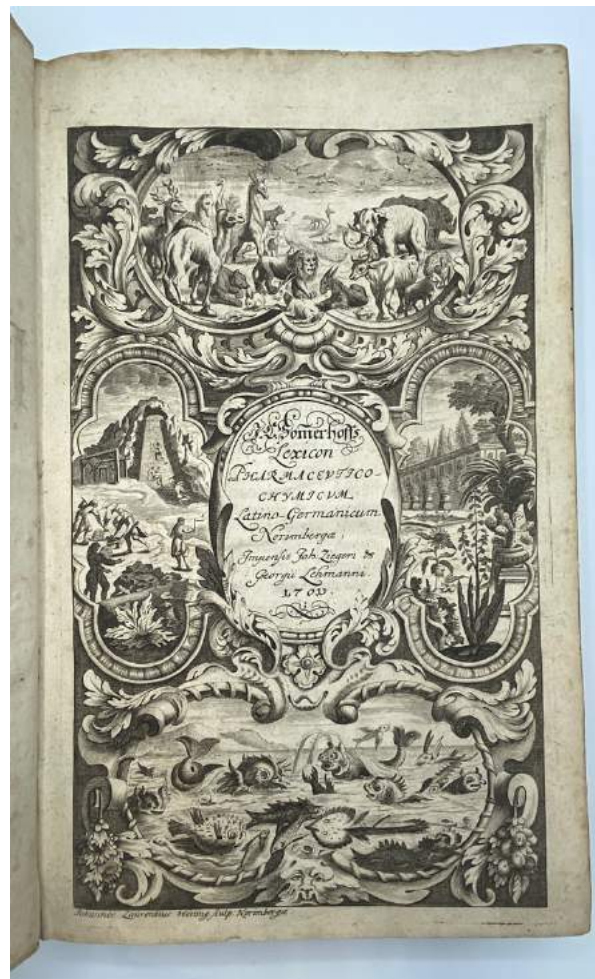 I. C. Som̃erhoffs
Lexicon
PHARMACEVTICO-
CHYMICVM
Latino-Germanicum
Norimbergæ,
Impensis Joh. Ziegeri &
Georgii Lehmanni.
1701.
Laurentius Hönnig sculp. Norimbergæ